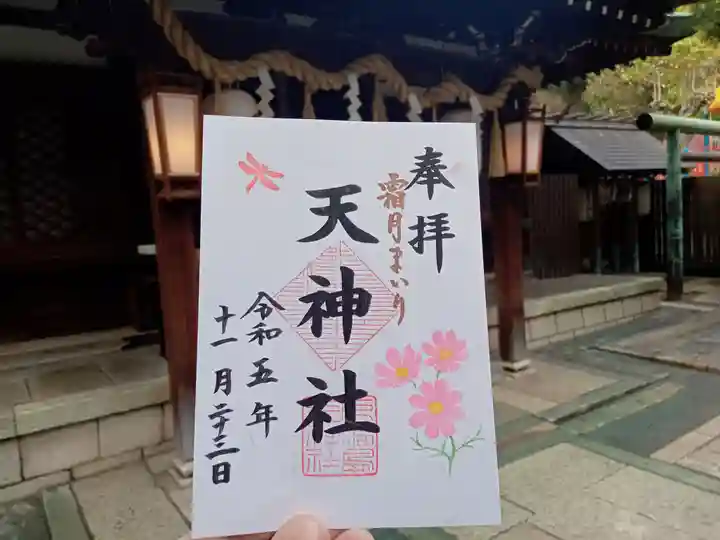 奉拝
霜月まいり
天神社
令和五年
十一月二十三日